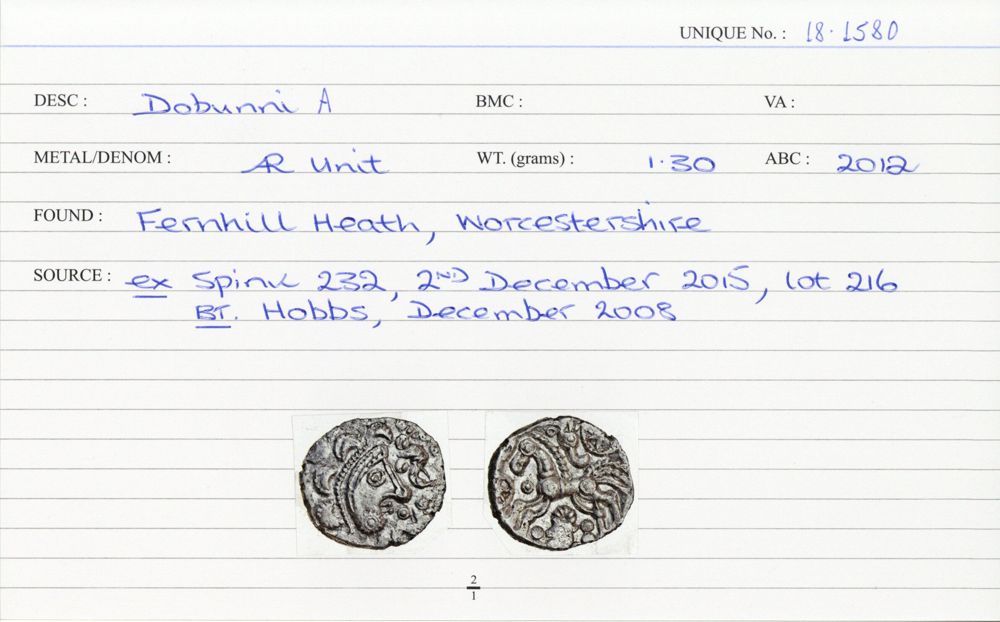 UNIQUE No. : 18.1580
DESC : Dobunni A BMC : VA :
METAL/DENOM : AR Unit WT. (grams) : 1.30 ABC : 2012
FOUND : Fernhill Heath, Worcestershire
SOURCE : ex Spink 232, 2ND December 2015, lot 216
BT. Hobbs, December 2008
2
1